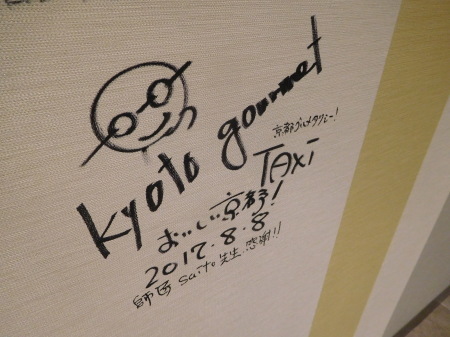 kyoto gourmet
京都グルメタクシー!
TAXi
おいしい京都!
2017.8.8
師匠 saito先生 感謝!!